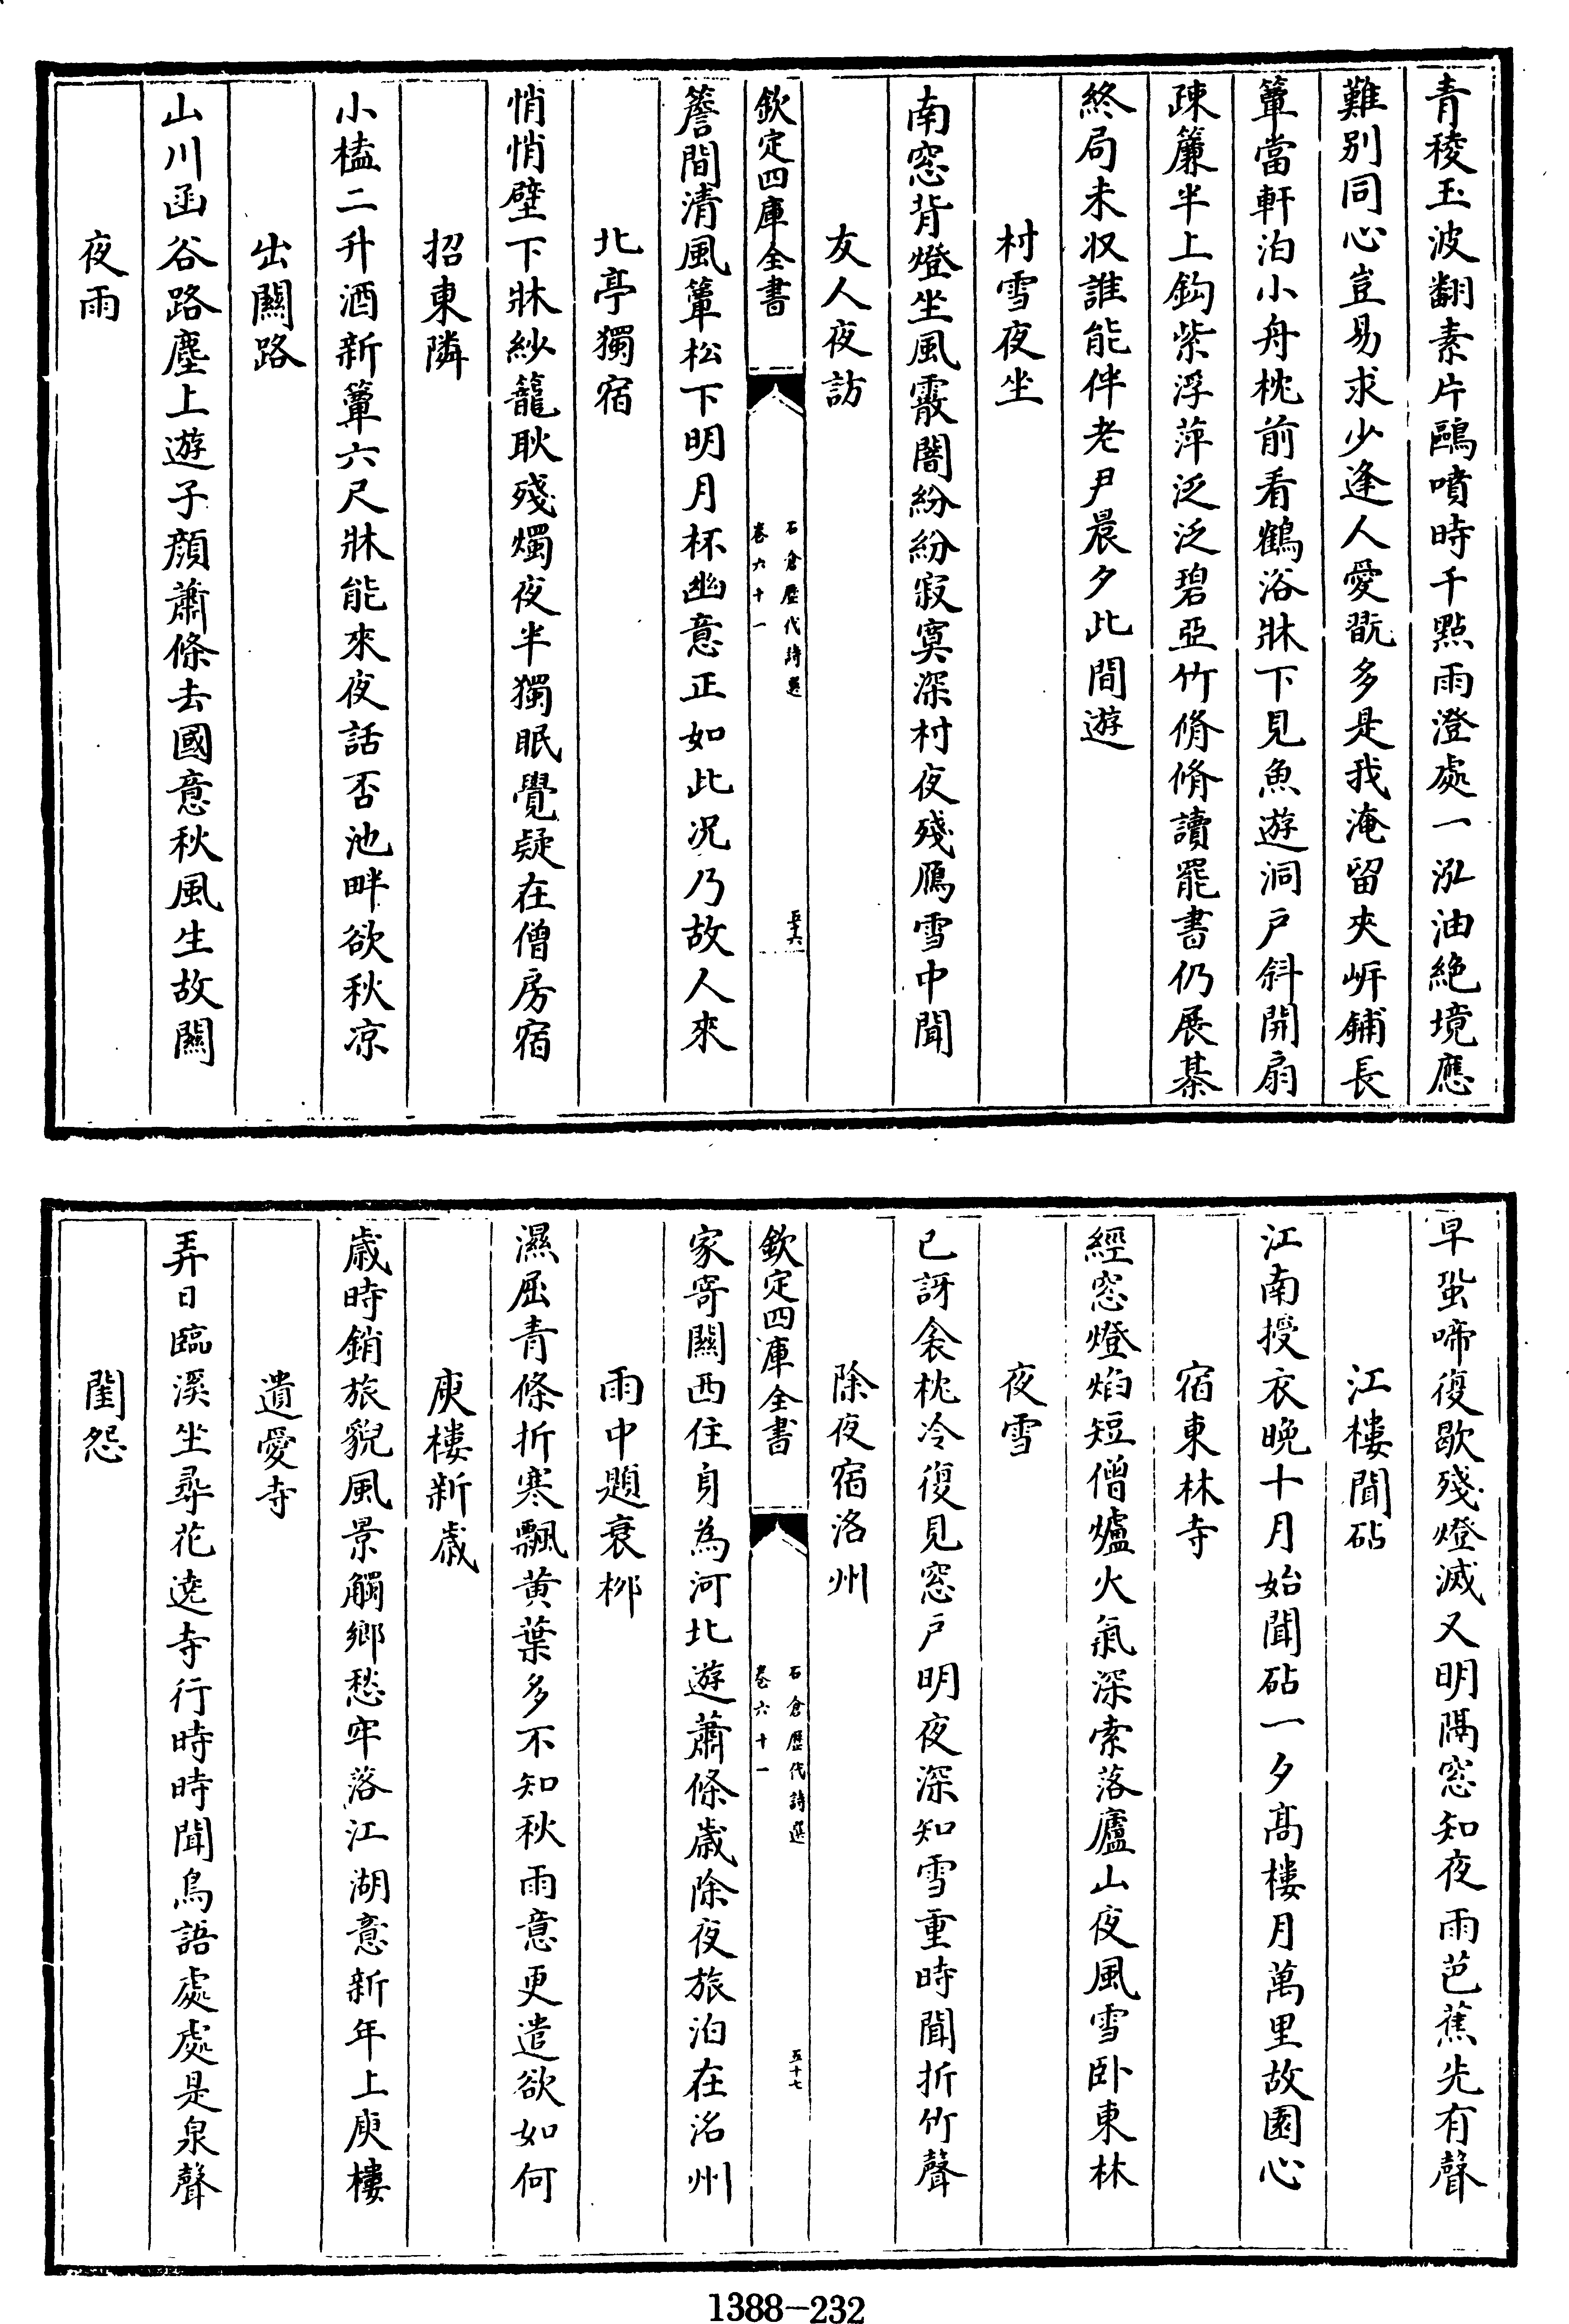 青稜玉波翻素片鷗噴時千點雨澄處一泓油絶境應
難别同心豈易求少逢人愛翫多是我淹留夾岍鋪長
簟當軒泊小舟枕前看鶴浴牀下見魚遊洞戸斜開扇
疎簾半上鈎紫浮萍泛泛碧亞竹脩脩讀罷書仍展棊
終局未収誰能伴老尹晨夕此間遊
村雪夜坐
南窓背燈坐風霰闇紛紛寂寞深村夜殘鴈雪中聞
友人夜訪
欽定四庫全書
石倉歷代詩選
卷六十一
五十六
簷間清風簟松下明月杯幽意正如此况乃故人來
北亭獨宿
悄悄壁下牀紗籠耿殘燭夜半獨眠覺疑在僧房宿
招東隣
小榼二升酒新簟六尺牀能來夜話否池畔欲秋凉
出關路
山川函谷路塵上遊子顔蕭條去國意秋風生故關
夜雨
早蛩啼復歇殘燈滅又明隔窓知夜雨芭蕉先有聲
江樓聞砧
江南授衣晚十月始聞砧一夕髙樓月萬里故園心
宿東林寺
經窓燈焰短僧爐火氣深索落廬山夜風雪卧東林
夜雪
已訝衾枕冷復見窓戸明夜深知雪重時聞折竹聲
除夜宿洛州
欽定四庫全書
石倉歷代詩選
卷六十一
五十七
家寄關西住身為河北遊蕭條歲除夜旅泊在洺州
雨中題衰栁
濕屈青條折寒飄黄葉多不知秋雨意更遣欲如何
庾樓新歲
歲時銷旅貌風景觸鄉愁牢落江湖意新年上庾樓
遺愛寺
弄日臨溪坐尋花遶寺行時時聞鳥語處處是泉聲
閨怨
1388—232